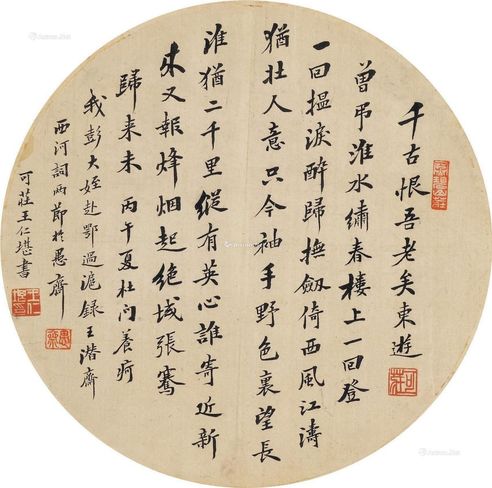 千古恨吾老矣東遊
曾弔淮水繡春樓上一回登
一回搵淚醉歸撫劔倚西風江濤
猶壯人意只今袖手野色裏望長
淮猶二千里縱有英心誰寄近新
來又報烽烟起絶域張騫
歸来未丙午夏杜门養疴
我彭大姪赴鄂過滬録王潛齊
西河詞兩節於愚齊
可莊王仁堪書
可莊